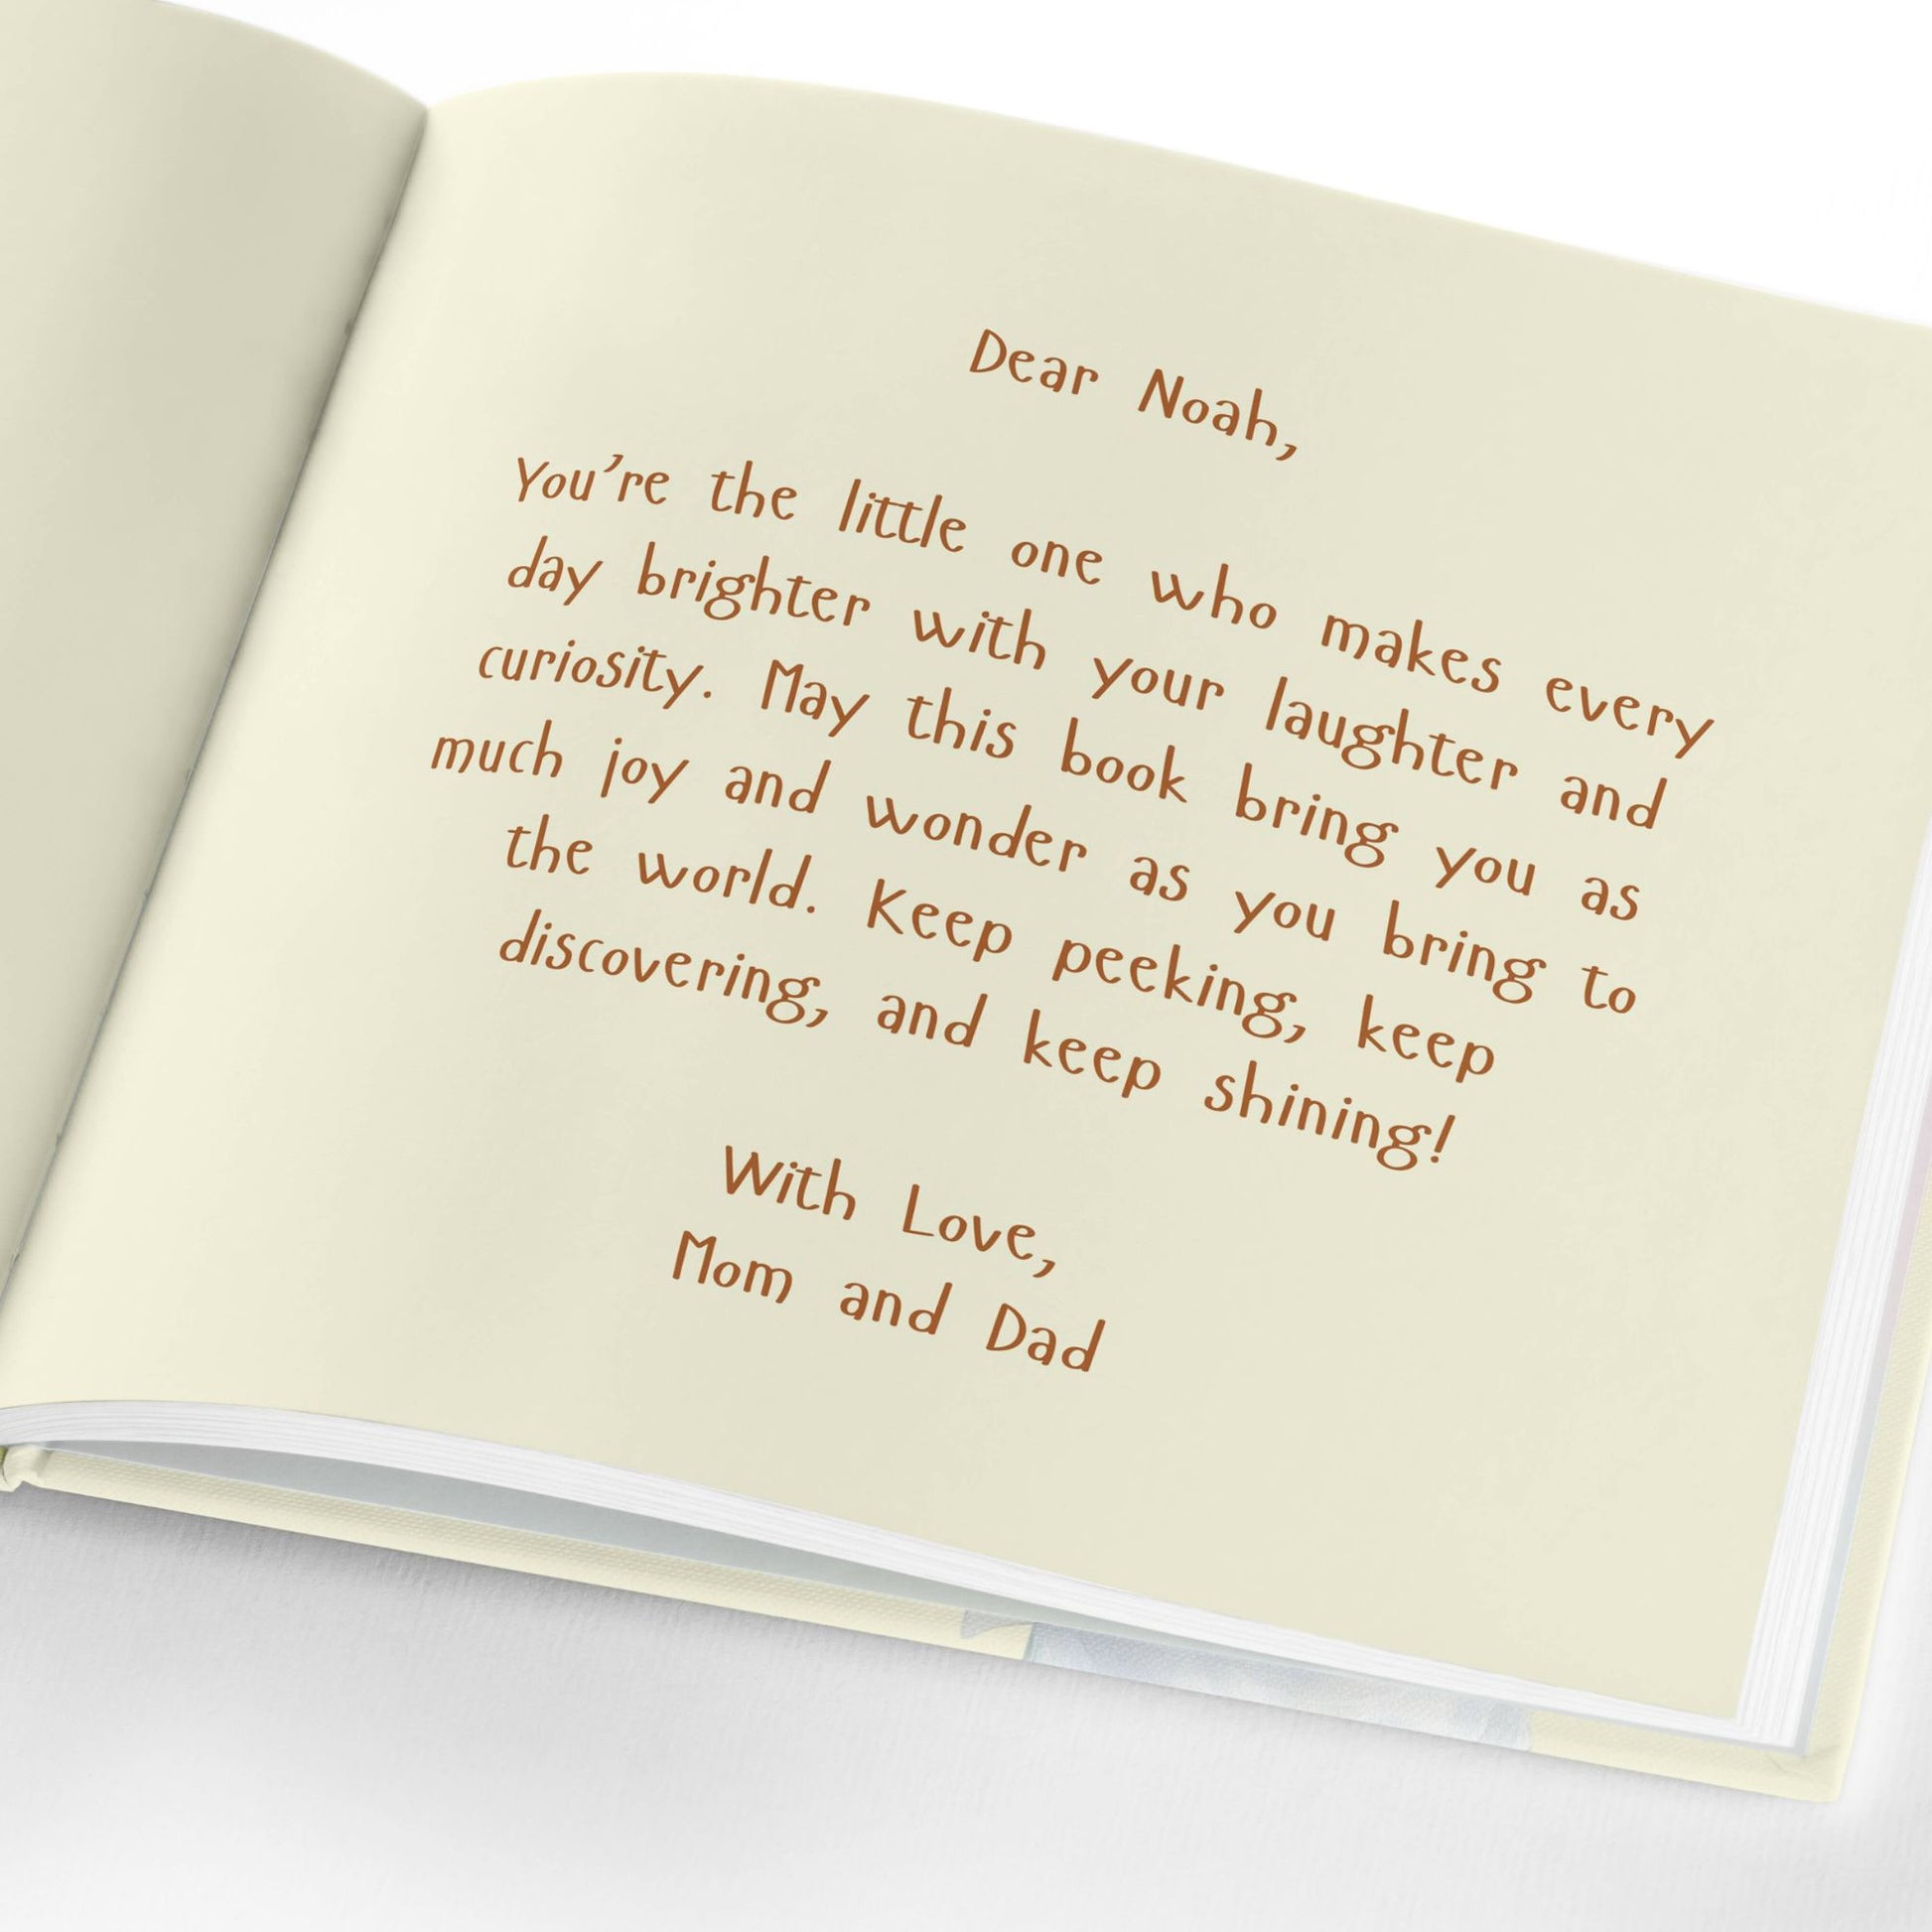 Dear Noah,
You're the little one who makes every
day brighter with your laughter and
curiosity. May this book bring you as
much joy and wonder as you bring to
the world. Keep peeking, keep
discovering, and keep shining!
With Love,
Mom and Dad